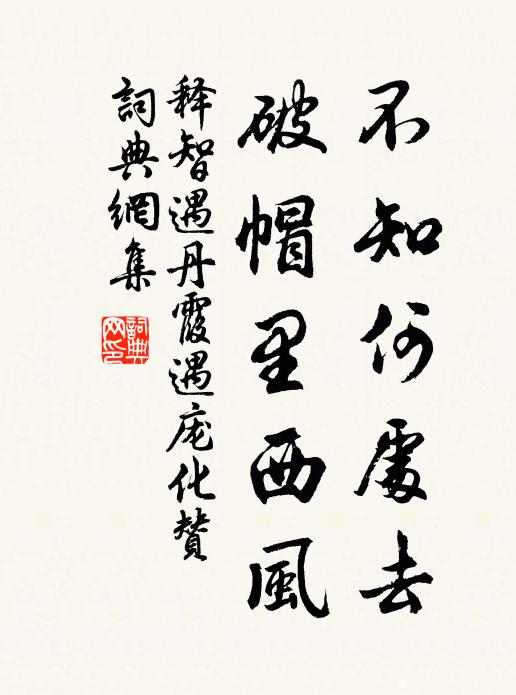 不知何處去
破帽里西風
释智遇丹霞遇庞化赞
詞典網集
詞典网印